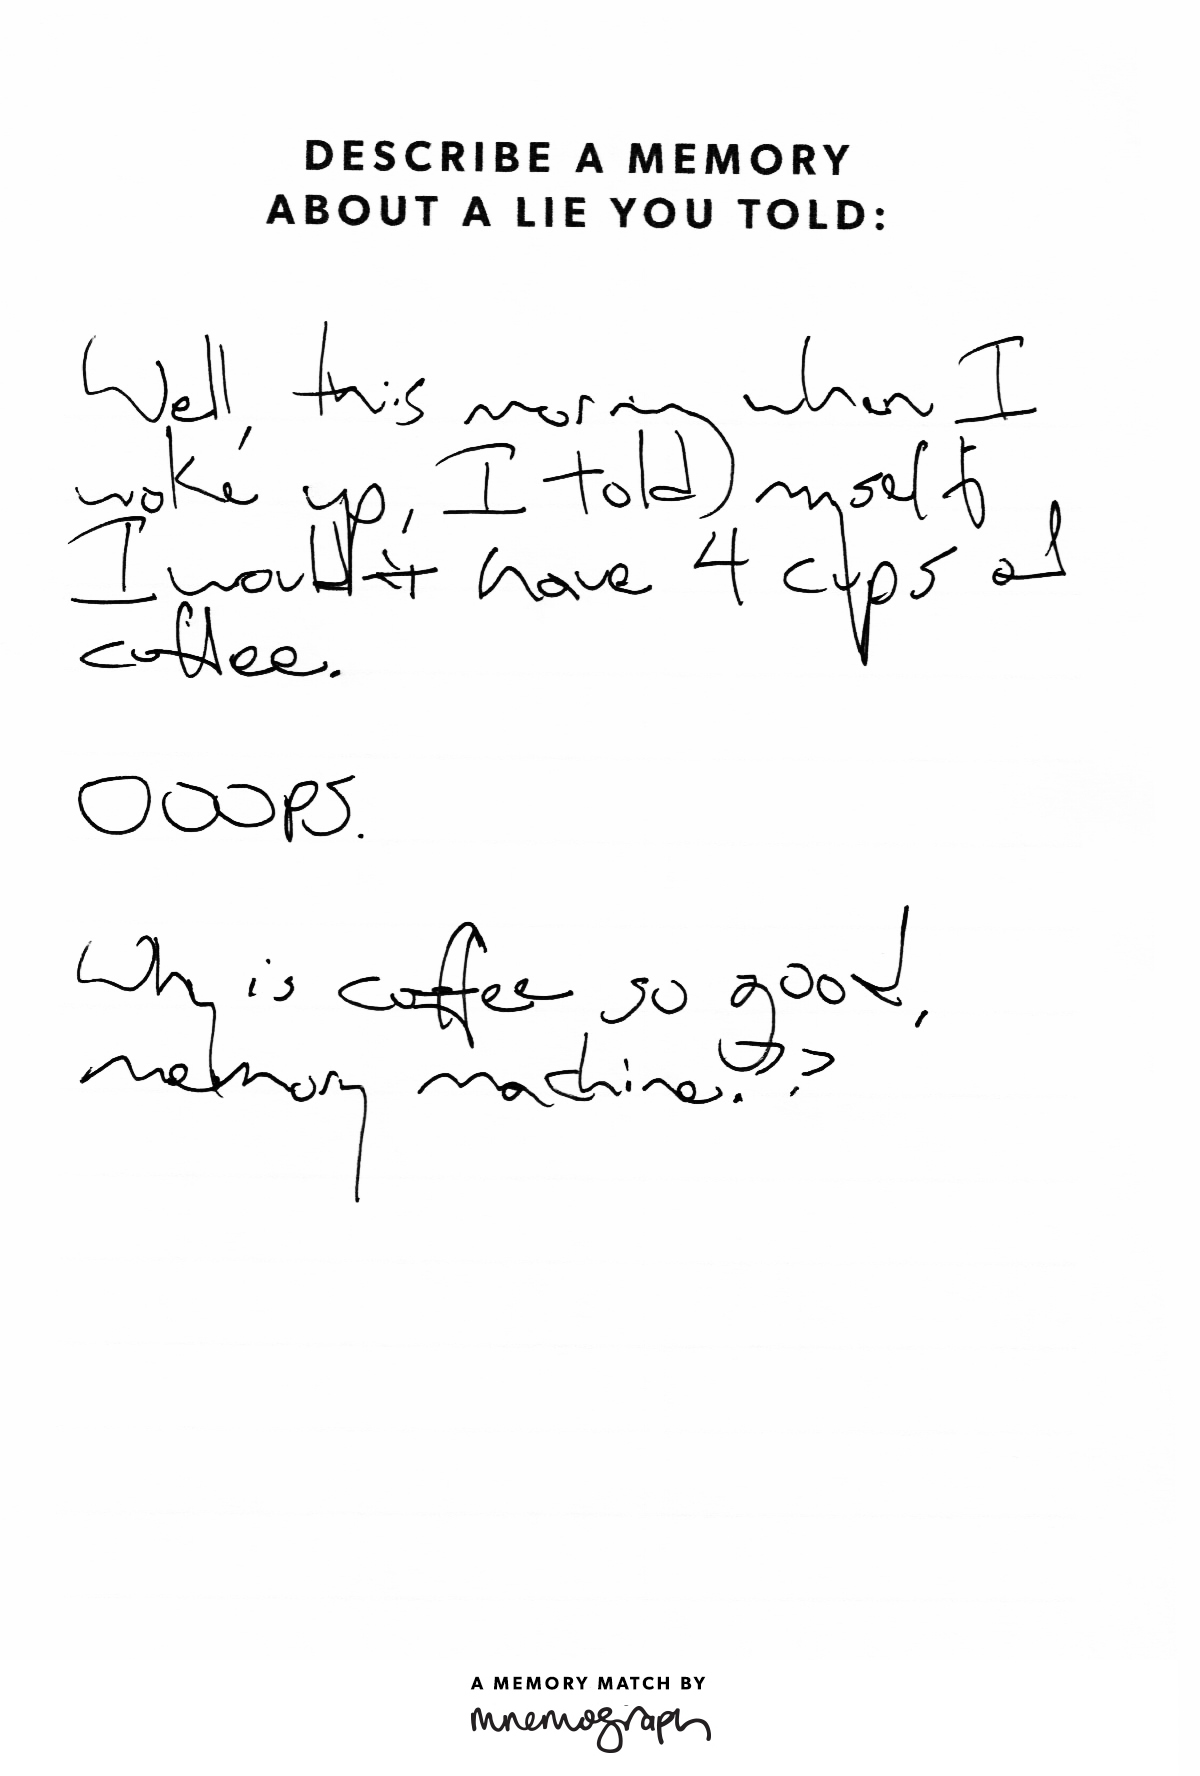 DESCRIBE A MEMORY
ABOUT A LIE YOU TOLD:
Well, this morning when I
woke up, I told myself
I wouldn't have 4 cups of
coffee.
OOOPS.
Why is coffee so good,
memory machine??
A MEMORY MATCH BY
mnemograph